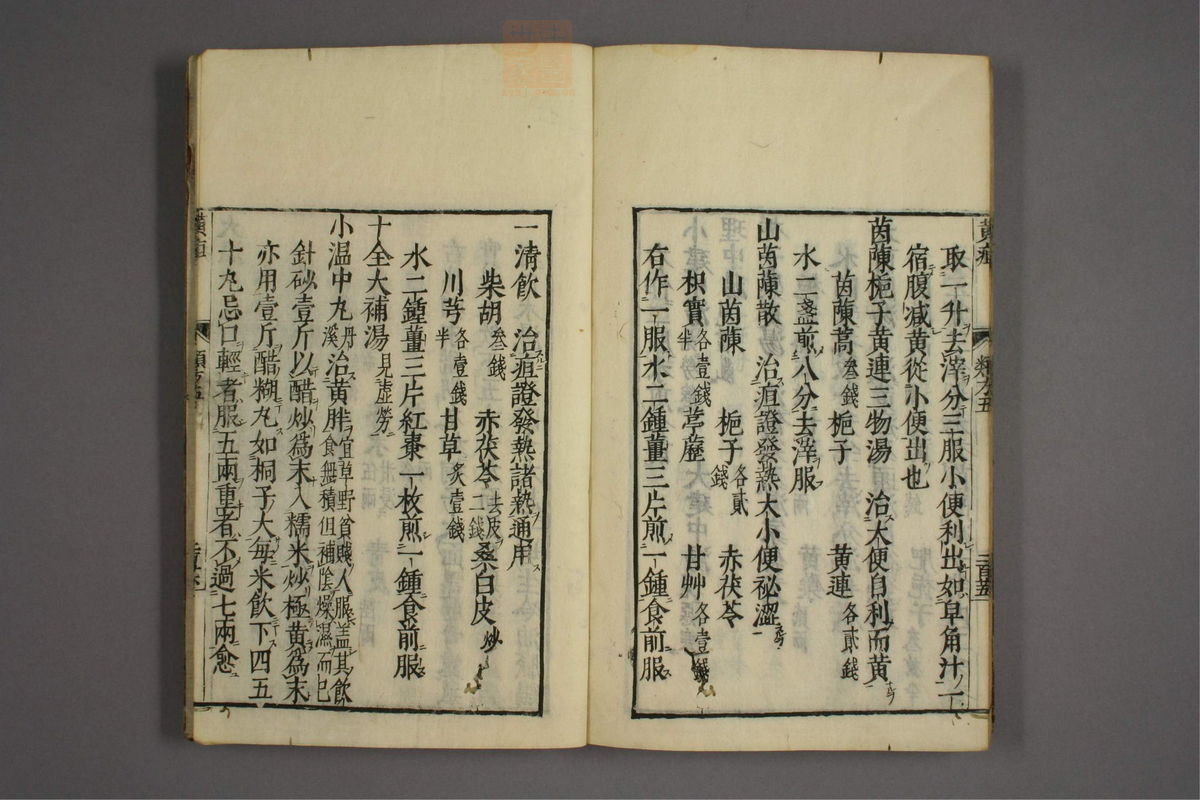 取一升去滓分三服小便利出如皁角汁一
宿腹減黃從小便出也
茵蔯梔子黃連三物湯　治大便自利而黃
茵蔯蒿叁錢　梔子　黃連各貳錢
水二盞煎八分去滓服
山茵蔯散　治疸證發熱大小便祕澀
山茵蔯　梔子各貳錢　赤茯苓
枳實各壹錢半　葶藶　甘艸各壹錢
右作一服水二鍾薑三片煎一鍾食前服
黃疸　類方五　二百五
一清飲　治疸證發熱諸熱通用
柴胡叁錢　赤茯苓去皮二錢　桑白皮炒
川芎各壹錢半　甘草炙壹錢
水二鍾薑三片紅棗一枚煎一鍾食前服
十全大補湯見虛勞
小温中丸丹溪　治黃胖宜草野貧賤人服盖其飲食無積但補陰燥濕而已
針砂壹斤以醋炒爲末入糯米炒極黃爲末
亦用壹斤醋糊丸如桐子大每米飲下四五
十丸忌口輕者服五兩重者不過七兩愈
黃疸